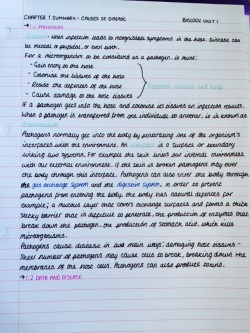 CHAPTER 1 SUMMARY - CAUSES OF DISEASE
BIOLOGY UNIT 1
→ 1.1 PATHOGENS
Disease - when infection leads to recognisable symptoms in the host. Disease can
be mental or physical, or even both.
For a microorganism to be considered as a pathogen it must:
- Gain entry to the host
- Colonise the tissues of the host
- Resist the defences of the host
- Cause damage to the host tissues
Bacteria, viruses and fungi
If a pathogen gets into the host and colonises its tissues an infection results.
When a pathogen is transferred from one individual to another, it is known as
Pathogens normally get into the body by penetrating one of the organism's
interfaces with the environment. An interface is a surface or boundary
linking two systems. For example the skin links our internal environment
with the external environment. If the skin is broken pathogens may enter
the body through this interface. Pathogens can also enter the body through
the gas exchange system and the digestive system. In order to prevent
pathogens from entering the body, the body has natural defences for
example; a mucous layer that covers exchange surfaces and forms a thick
sticky barrier that is difficult to penetrate, the production of enzymes that
break down the pathogen, the production of stomach acid, which kills
microorganisms.
Pathogens cause disease in two main ways: damaging host tissues -
Sheer number of pathogens may cause cells to break, breaking down the
membranes of the host cells. Pathogens can also produce toxins.
→ 1.2 DATA AND DISEASE